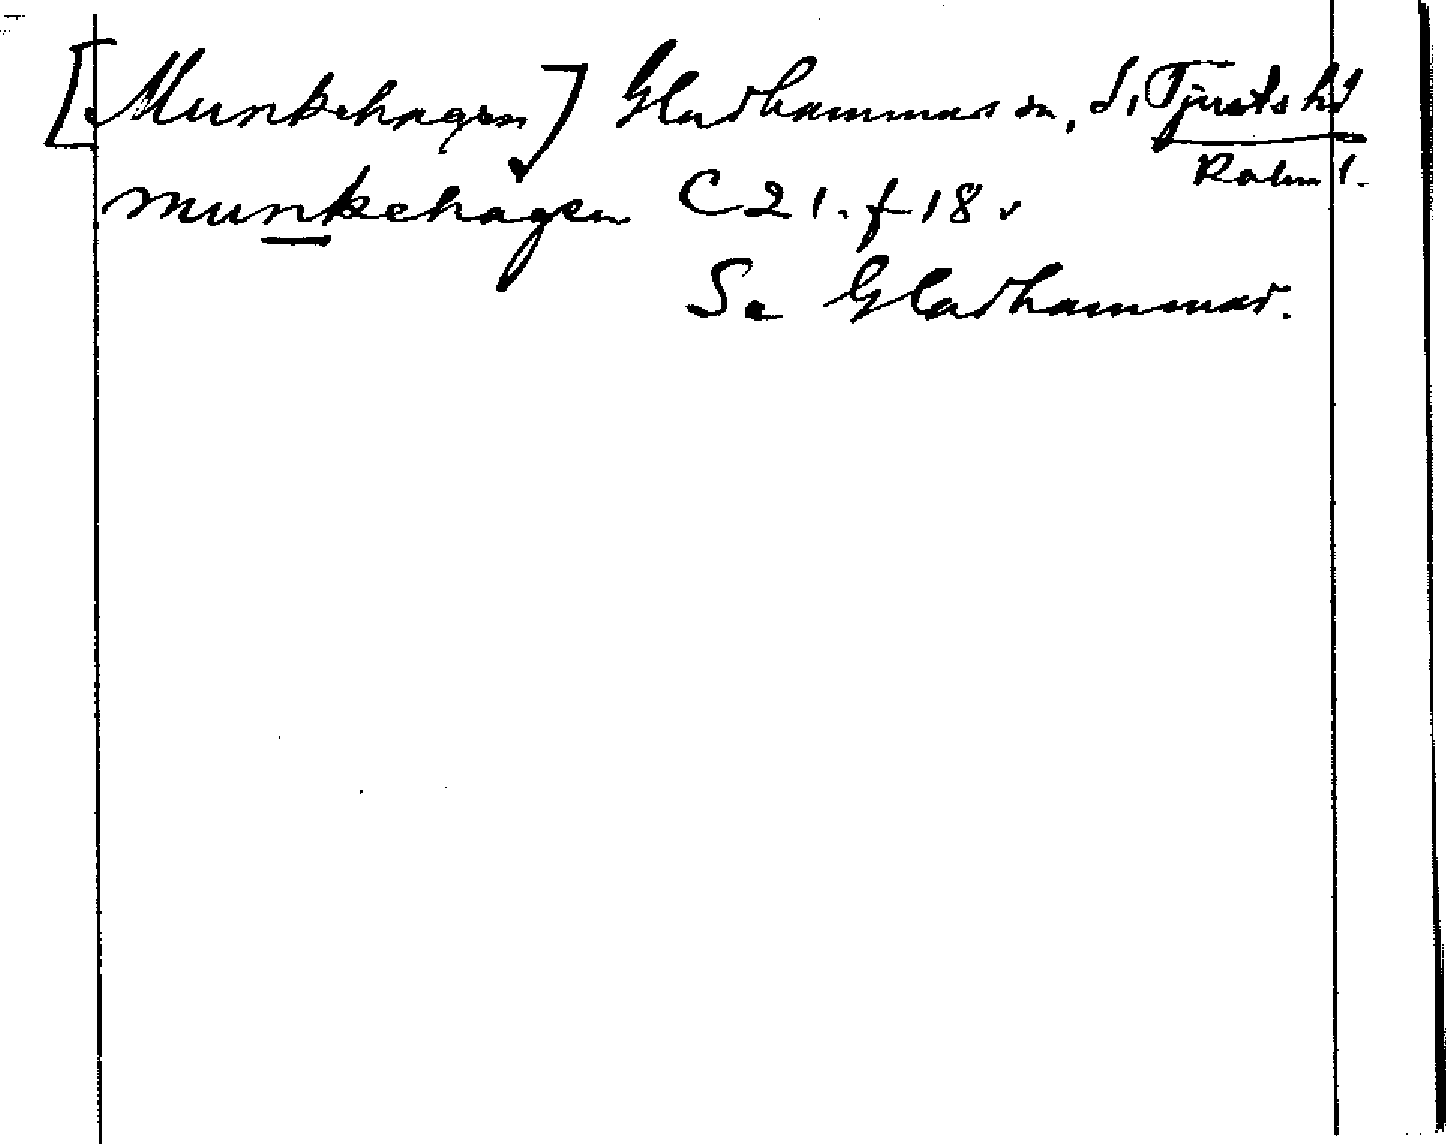 [Munkehagen] Gladhammar sn, S. Tjusts hd
Kalm l.
munkehagen C 21. f 18 v
Se Gladhammar.